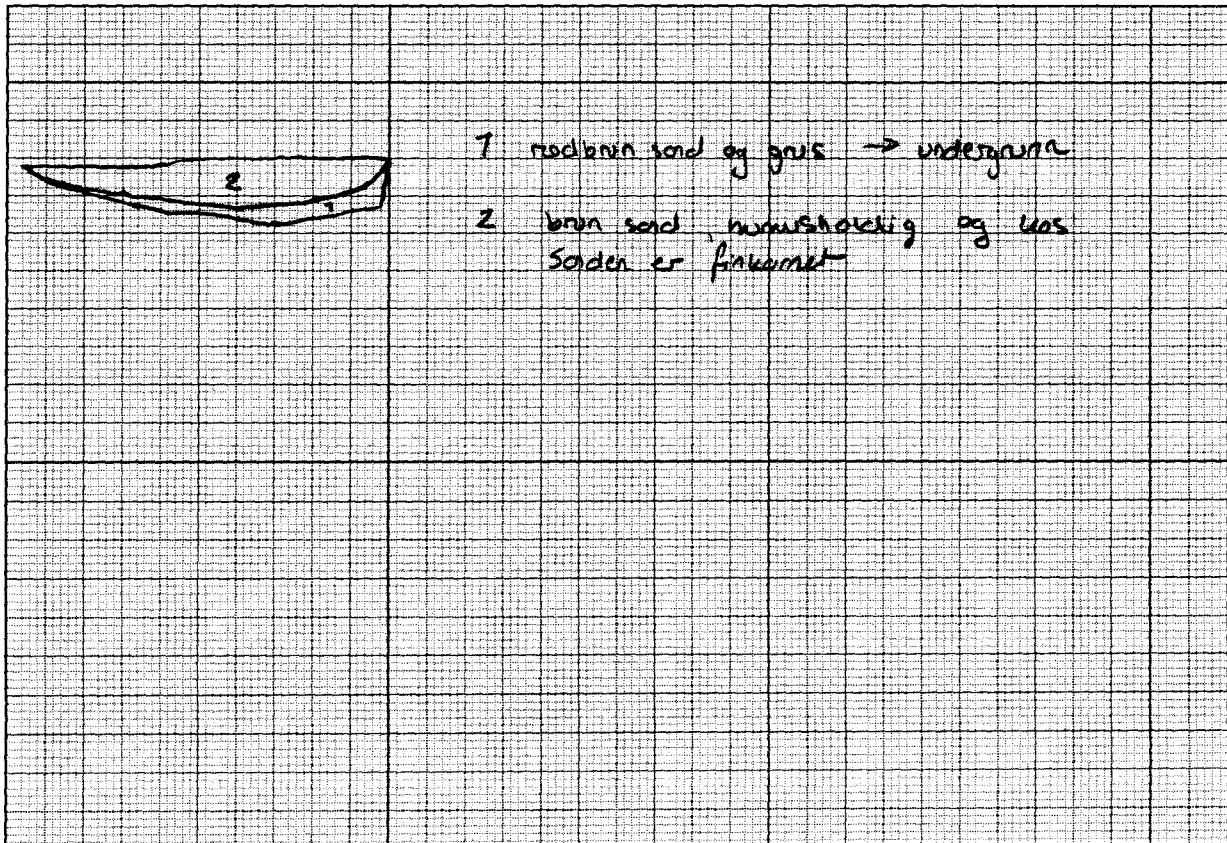 2
1
1 rødbrun sand og grus → undergrunn
2 brun sand, humusholdig og løs
Sanden er finkornet